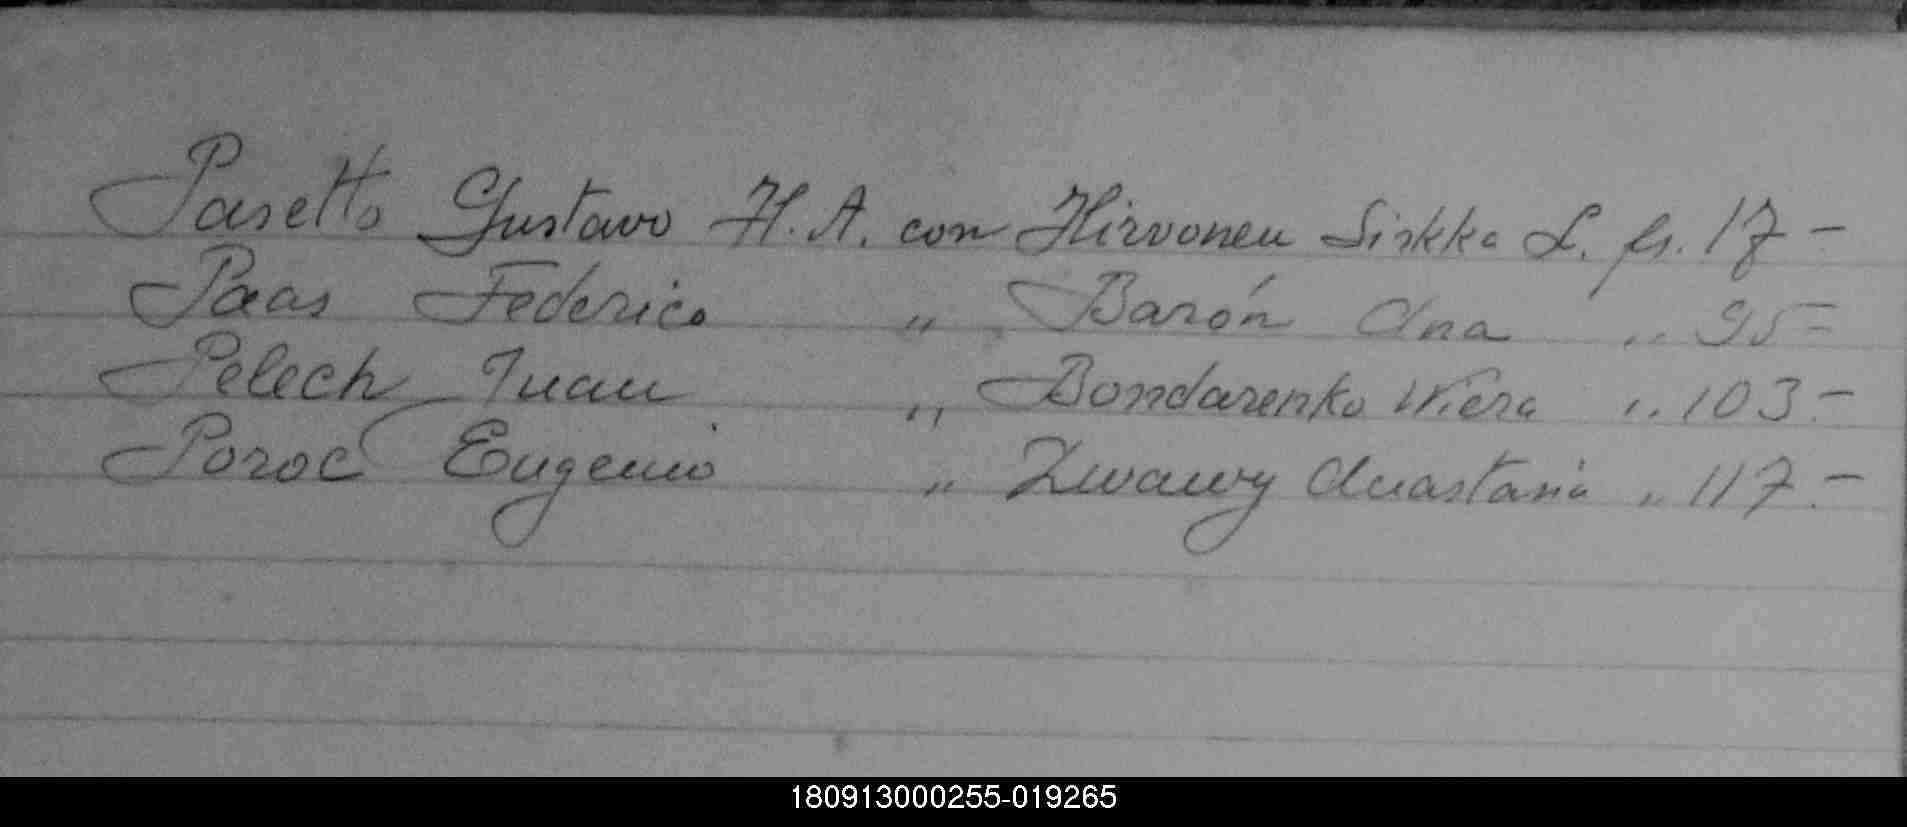 Pasetto Gustavo H. A. con Hirvonen Sirkka L. fs. 17 -
Paas Federico " Barón Ana " 95 -
Pelech Juan " Bondarenko Wiera " 103 -
Poroc Eugenio " Zwawy Anastasia " 117 -
180913000255-019265